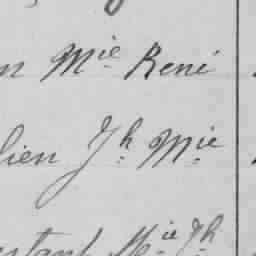 n Mie René
lien Jh Mie
stant Mie Jh